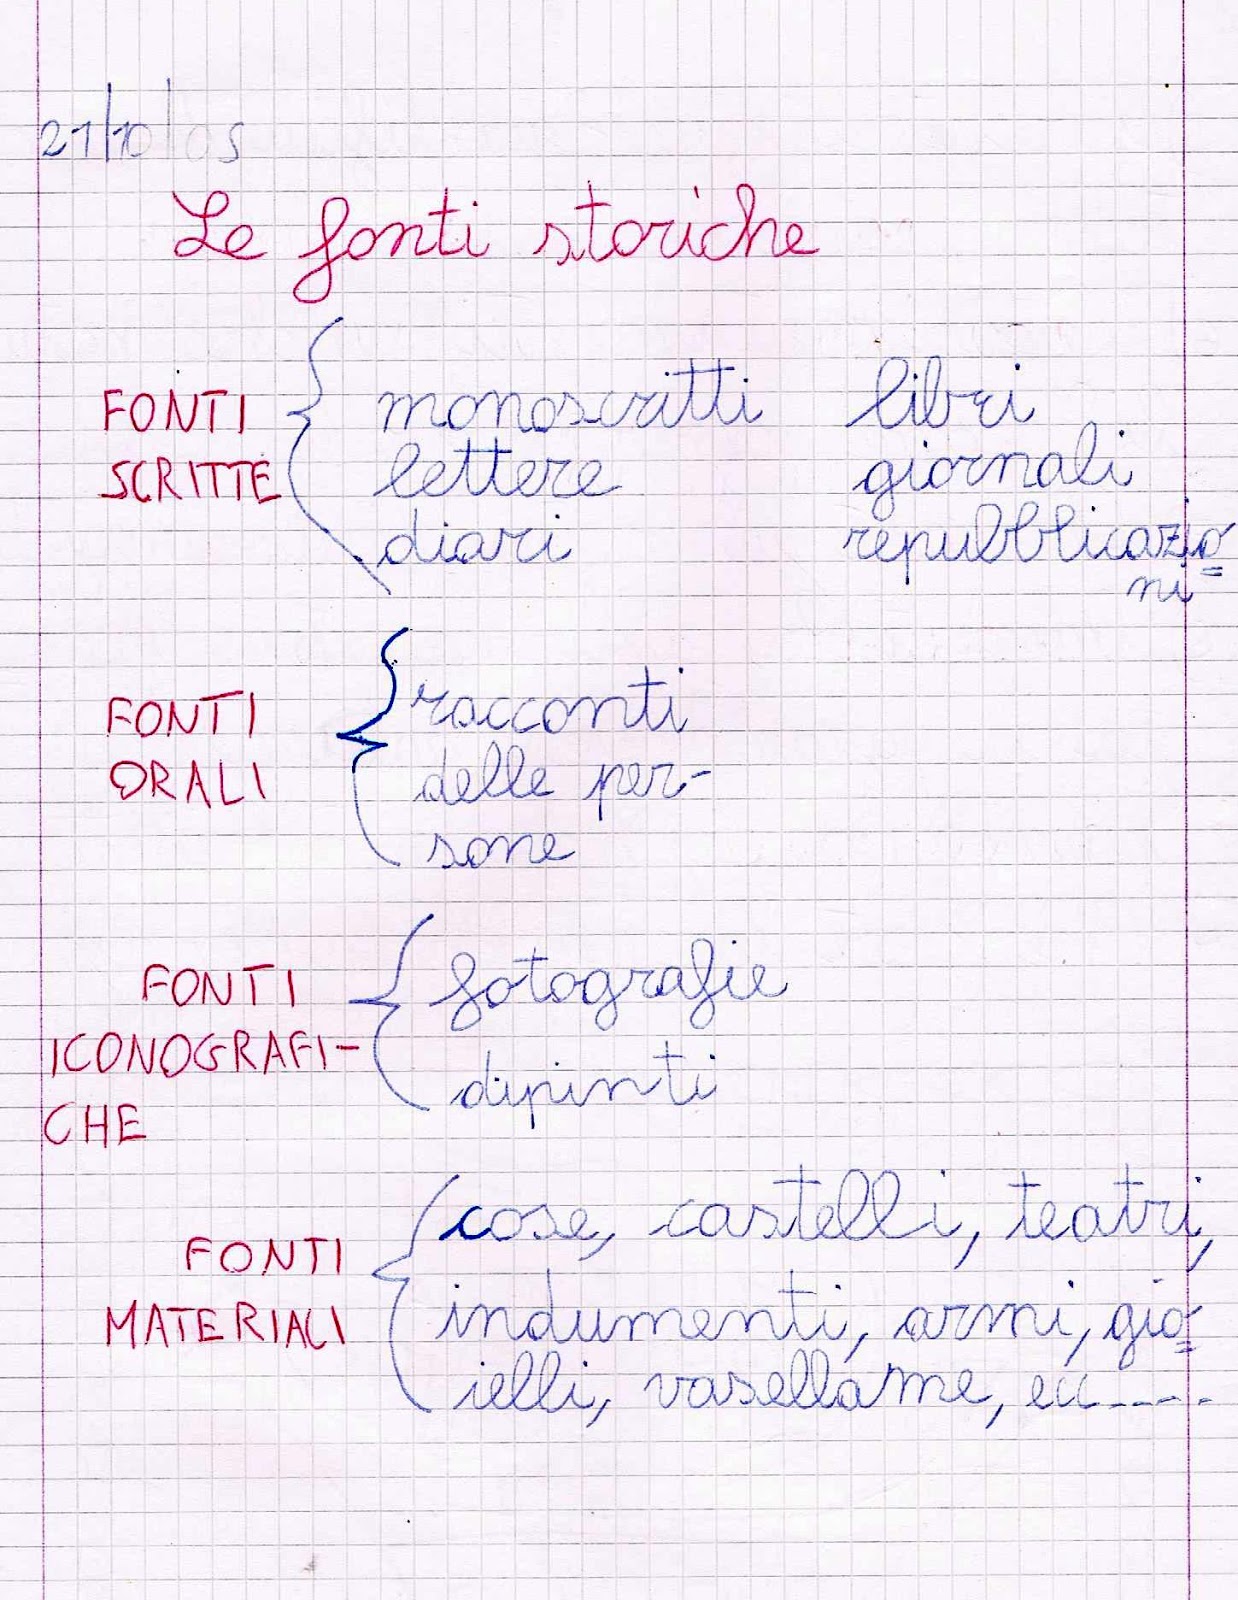 21/10/05
Le fonti storiche
FONTI
SCRITTE
monoscritti libri
lettere giornali
diari repubblicazio=
ni
FONTI
ORALI
racconti
delle per-
sone
FONTI
ICONOGRAFI-
CHE
fotografie
dipinti
FONTI
MATERIALI
cose, castelli, teatri,
indumenti, armi, gio=
ielli, vasellame, ecc-----